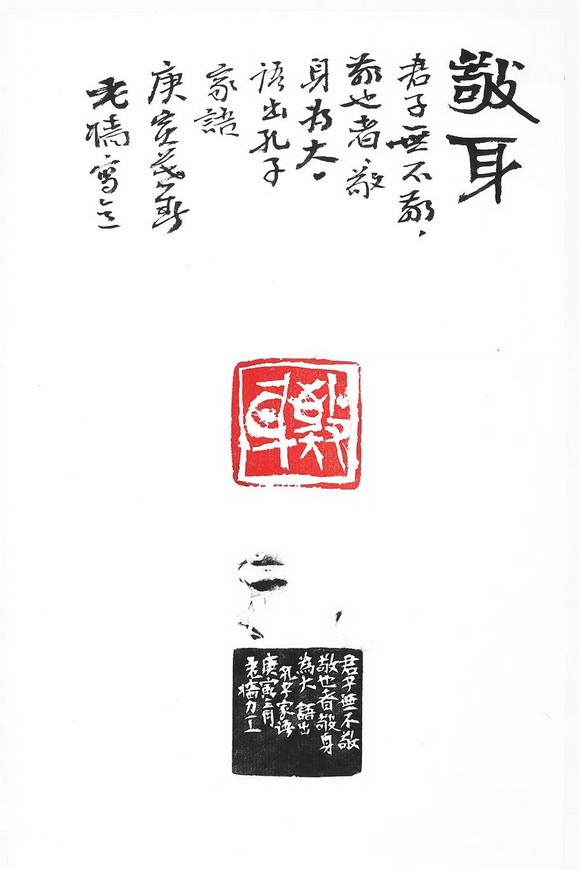 敬身
君子無不敬，
敬也者、敬
身為大。
語出孔子
家語
庚寅
老
敬身
君子無不敬
敬也者敬身
為大 語出
孔子家语
庚寅 月
老